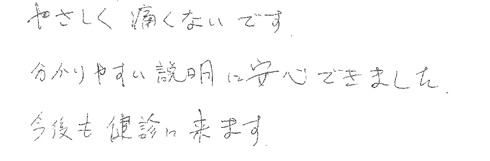 やさしく痛くないです.
分かりやすい説明に安心できました.
今後も健診に来ます.